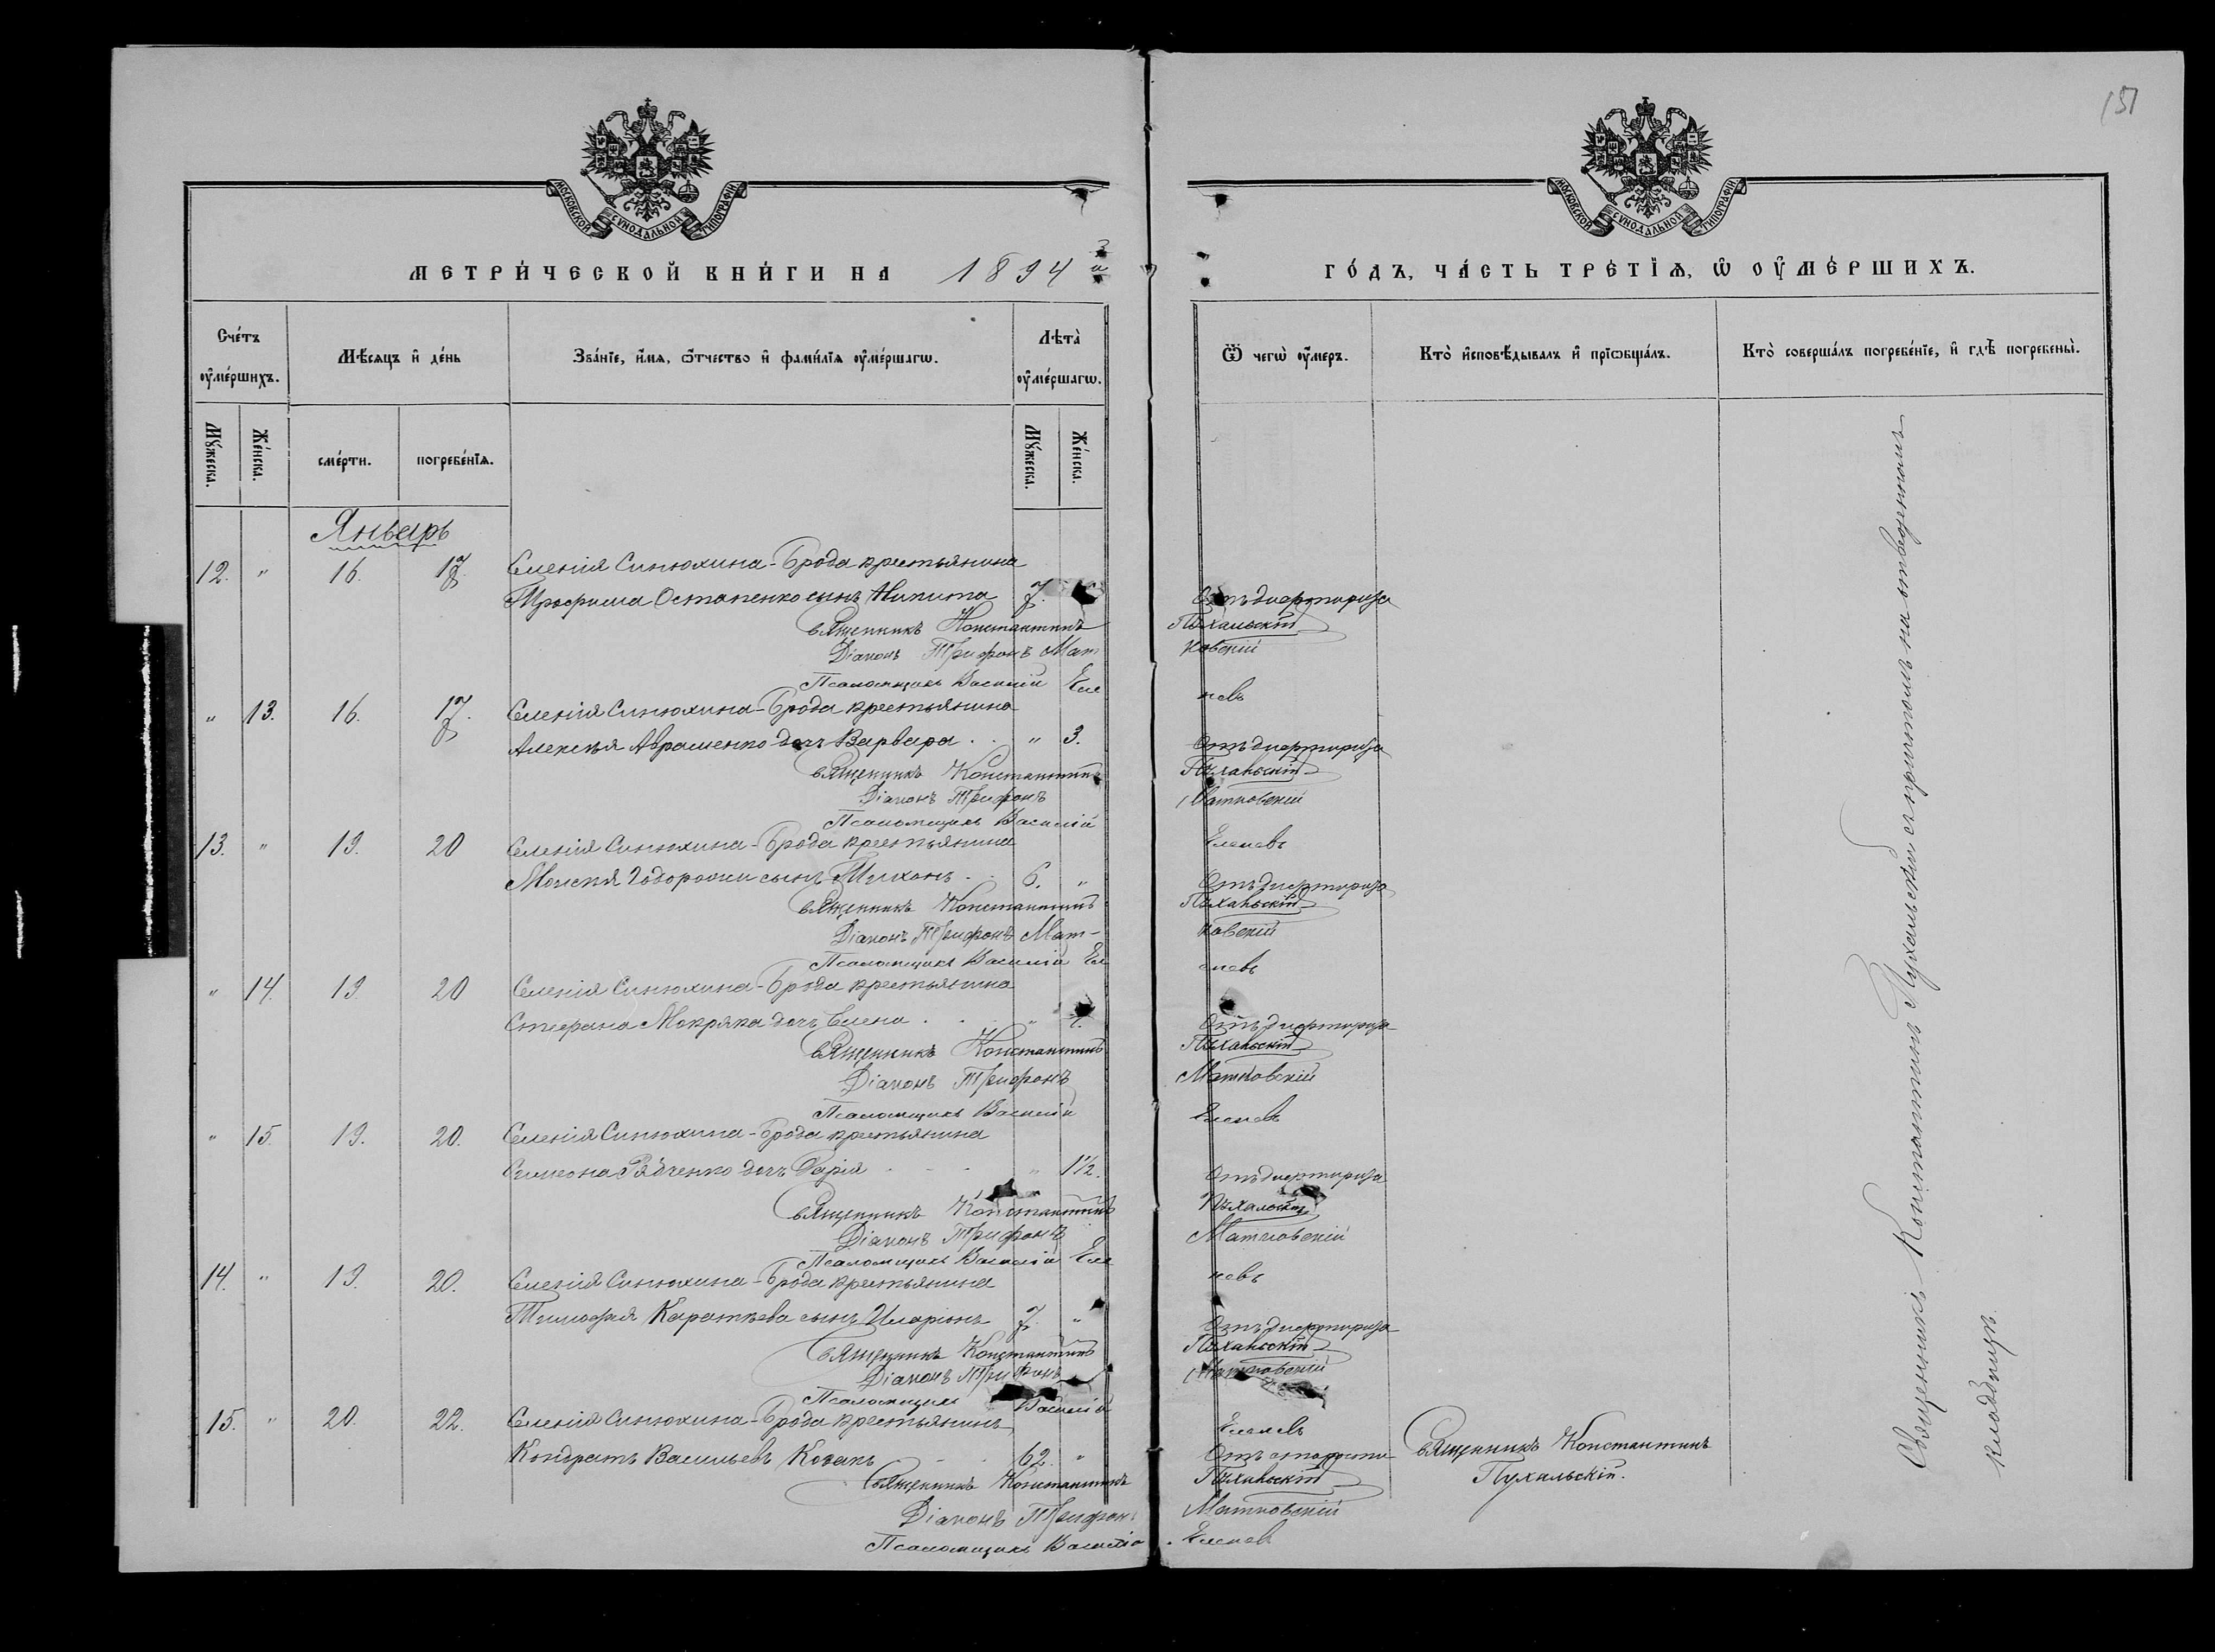 151
МОСКОВСКОЙ СѴНОДАЛЬНОЙ ТИПОГРАФІИ
МОСКОВСКОЙ СѴНОДАЛЬНОЙ ТИПОГРАФІИ
МЕТРИ́ЧЕСКОЙ КНИ́ГИ НА 1894 й
ГО́ДЪ, ЧА́СТЬ ТРЕ́ТЇѦ, Ѡ ОУ҆МЕ́РШИХЪ.
Сче́тъ оу҆ме́ршихъ.
Мѣ́сѧцъ и҆ де́нь
Зва́нїе, и҆́мѧ, ѻ҆́тчество и҆ фами́лїѧ оу҆ме́ршагѡ.
Лѣта̀ оу҆ме́ршагѡ.
Ѿ чегѡ̀ оу҆́меръ.
Кто̀ и҆сповѣ́дывалъ и҆ прїѡбща́лъ.
Кто̀ соверша́лъ погребе́нїе, и҆ гдѣ̀ погребены̀.
Мꙋ́жеска.
Же́нска.
сме́рти.
погребе́нїѧ.
Мꙋ́жеска.
Же́нска.
Январь
12. " 16. 17. Селенія Синюхина-Брода крестьянина
Трофима Остапенко сынъ Никита 7. Отъ дифтирита
Священникъ Константинъ Пухальскій
Діаконъ Трифонъ Матковскій
Псаломщикъ Василій Еленевъ
" 13. 16. 17. Селенія Синюхина-Брода крестьянина
Алексѣя Авраменко дочь Варвара " 3. Отъ дифтирита
Священникъ Константинъ Пухальскій
Діаконъ Трифонъ Матковскій
Псаломщикъ Василій Еленевъ
13. " 19. 20 Селенія Синюхина-Брода крестьянина
Моисея сынъ Тихонъ 6. " Отъ дифтирита
Священникъ Константинъ Пухальскій
Діаконъ Трифонъ Матковскій
Псаломщикъ Василій Еленевъ
" 14. 19. 20 Селенія Синюхина-Брода крестьянина
Стефана Мокряка дочь Елена " Отъ дифтирита
Священникъ Константинъ Пухальскій
Діаконъ Трифонъ Матковскій
Псаломщикъ Василій Еленевъ
" 15. 19. 20. Селенія Синюхина-Брода крестьянина
Симеона Рябченко дочь Дарія " 1½. Отъ дифтирита
Священникъ Константинъ Пухальскій
Діаконъ Трифонъ Матковскій
Псаломщикъ Василій Еленевъ
14. " 19. 20. Селенія Синюхина-Брода крестьянина
Тимофея Каратѣева сынъ Иларіонъ 7. " Отъ дифтирита
Священникъ Константинъ Пухальскій
Діаконъ Трифонъ Матковскій
Псаломщикъ Василій Еленевъ
15. " 20. 22. Селенія Синюхина-Брода крестьянинъ
Кондратъ Васильевъ Козакъ 62. " Отъ старости Священникъ Константинъ
Священникъ Константинъ Пухальскій Пухальскій.
Діаконъ Трифонъ Матковскій
Псаломщикъ Василій Еленев
Священникъ Константинъ Пухальскій съ причтомъ на отведенномъ
кладбищѣ.